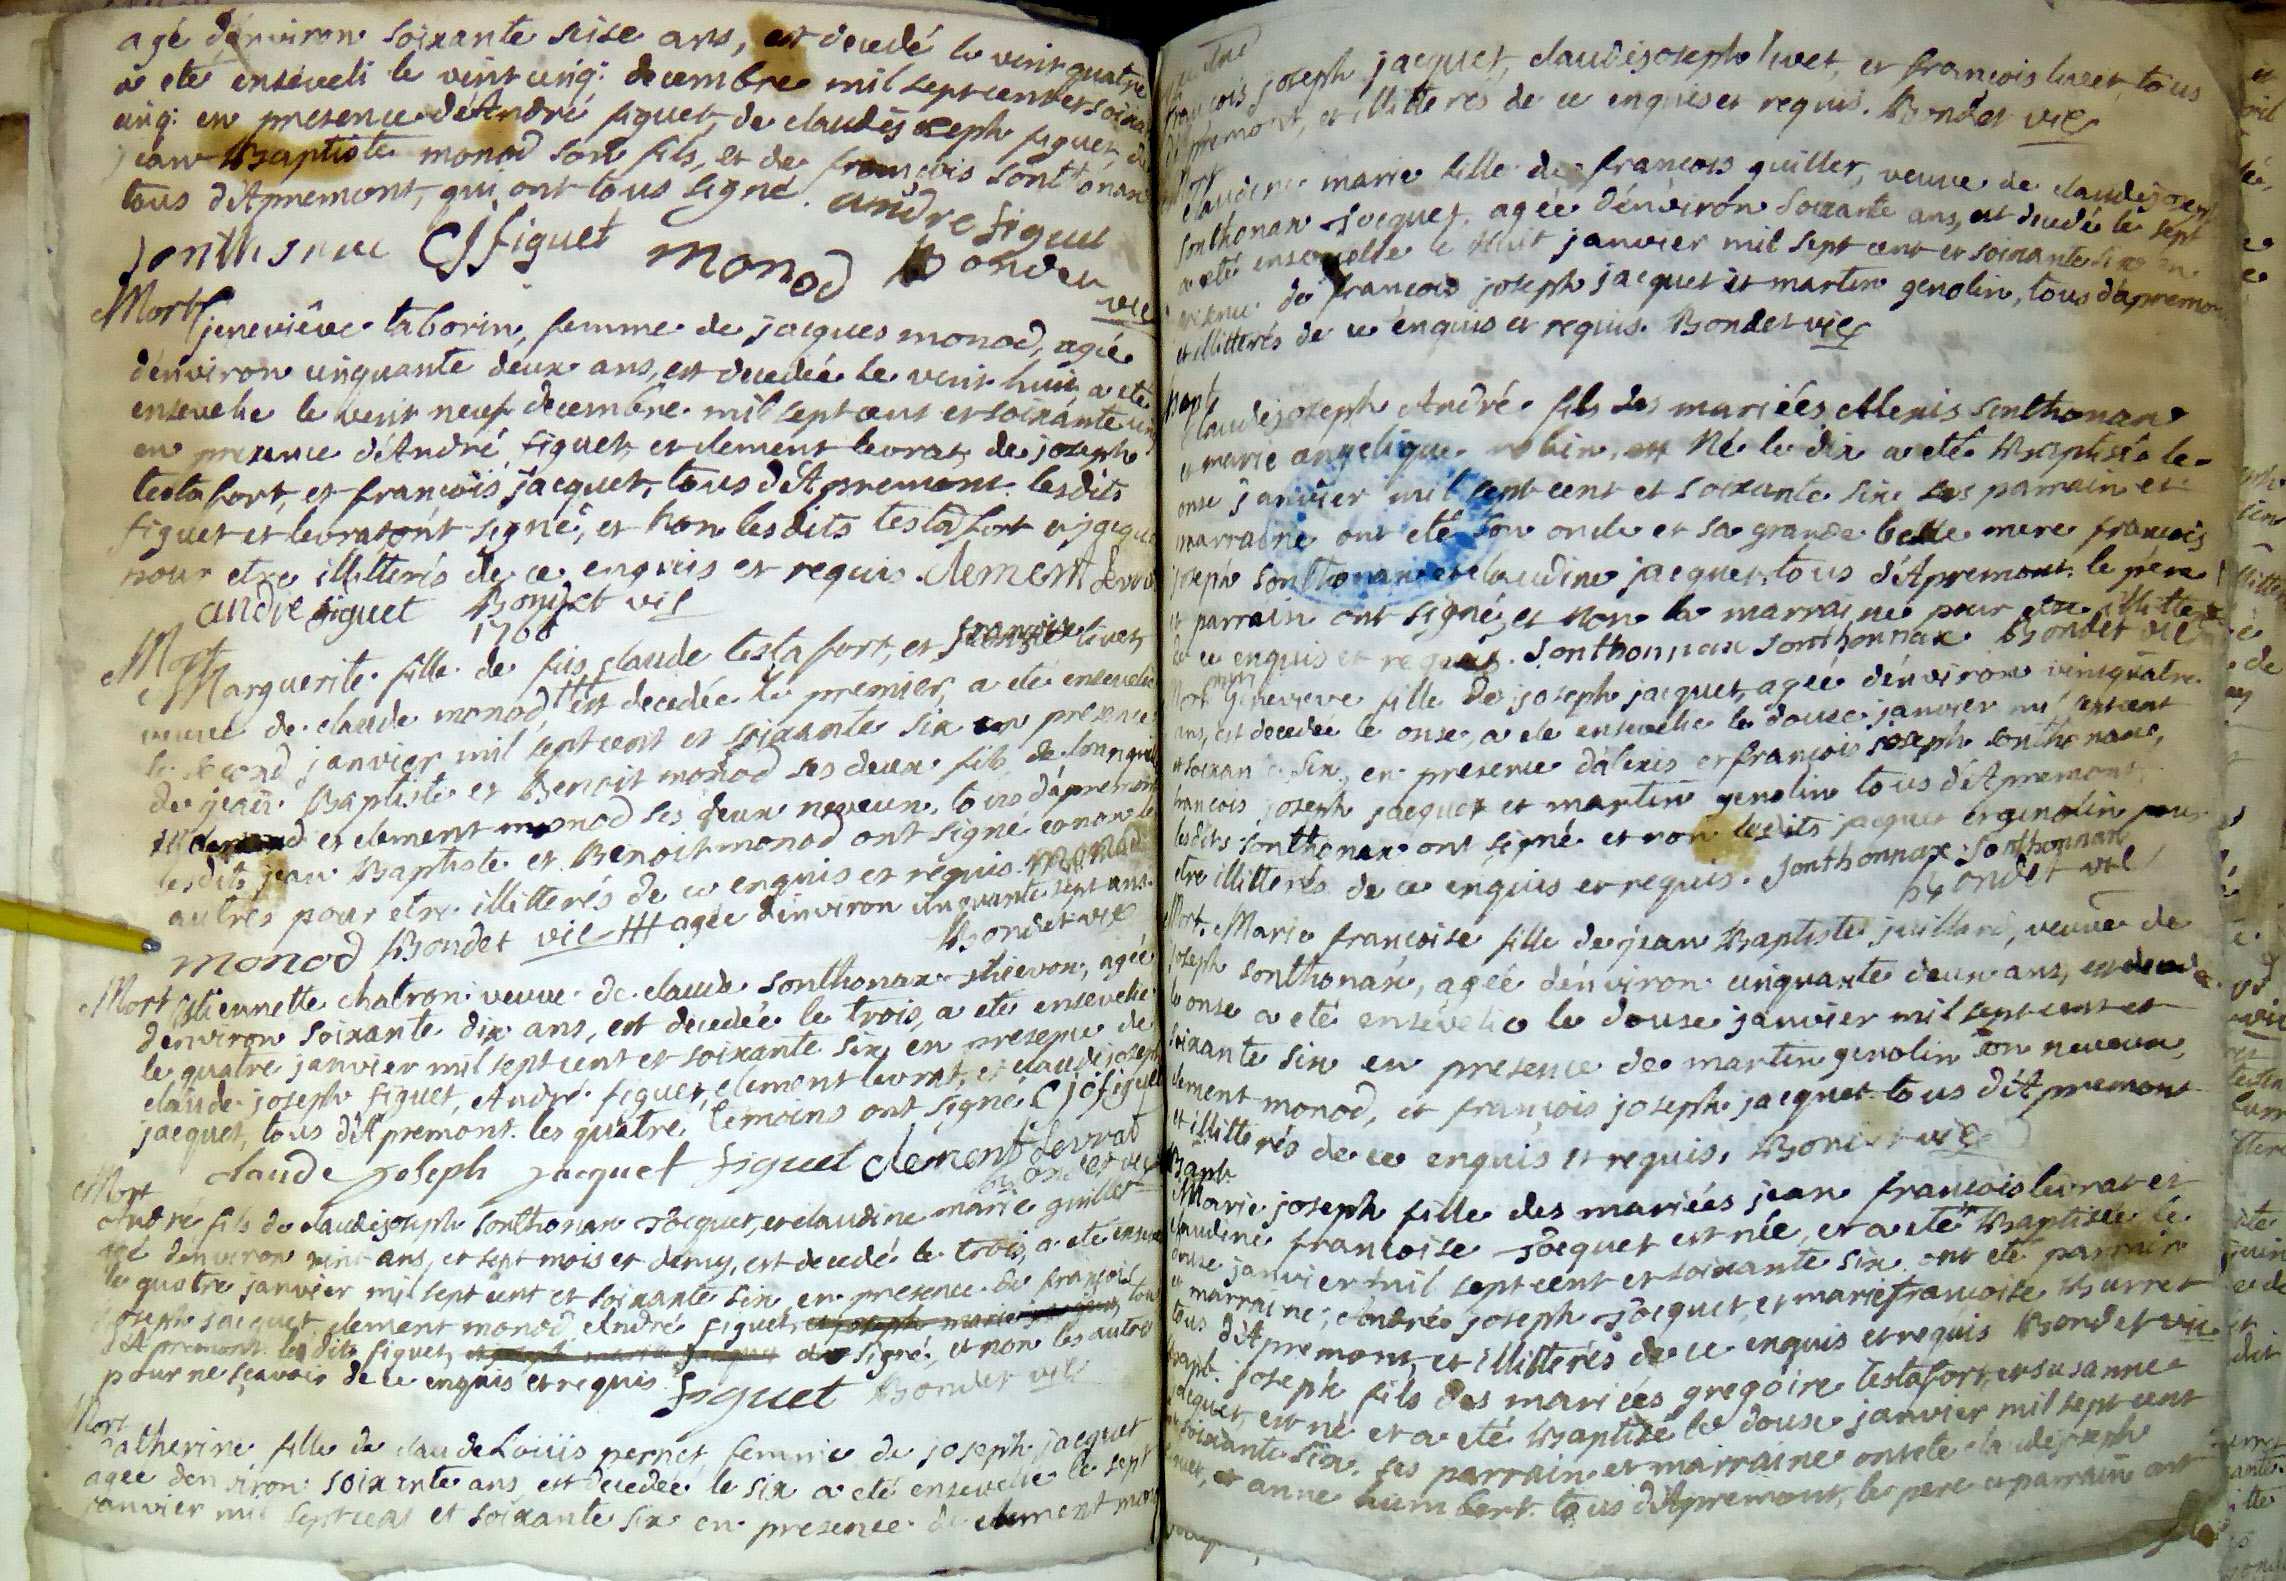 agé d'environ soixante seise ans, est decedé le vint quatre
a eté enseveli le vint cinq decembre mil sept cent et soixan
cinq: en presence d'André figuet, de claudejoseph figuet, de
jean Baptiste monod son fils, et de francois sonthonax
tous d'Apremont, qui ont tous signé. andre figuet
sonthonax CJfiguet monod Bondet
vic
Mort jeneviêve taborin, femme de jacques monod, agée
d'environ cinquante deux ans, est decedée le vint huit a eté
ensevelie le vint neuf decembre mil sept cent et soixante cinq
en presence d'André figuet, et clement levrat, de joseph
testafort, et francois jacquet, tous d'Apremont. lesdits
figuet et levrat ont signé, et non lesdits testafort et jacquet
pour etre illitterés de ce enquis et requis. clement levrat
andre figuet Bondet vic
1766
Mort
Marguerite fille de fus claude testafort, et francoise livet,
veuve de claude monod, ## est decedée le premier, a eté ensevelie
le second janvier mil sept cent et soixante six en presence
de jean Baptiste et Benoit monod ses deux fils de
et clement monod ses deux neveux, tous d'apremont
lesdits jean Baptiste et Benoit monod ont signé et non les
autres pour etre illitterés de ce enquis et requis. monod
monod Bondet vic ## agée d'environ cinquante sept ans.
Bondet vic
Mort Etiennette chatron veuve de claude sonthonax thievon, agée
d'environ soixante dix ans, est decedée le trois, a eté ensevelie
le quatre janvier mil sept cent et soixante six, en presence de
claude joseph figuet, André figuet, clement levrat, et claudejoseph
jacquet, tous d'Apremont. les quatre temoins ont signé. Cjofiguet
claude joseph jacquet figuet clément Levrat
Bondet vic
Mort
André fils de claudejoseph sonthonax Jocquet, et claudine marie guillet
agé d'environ vint ans, et sept mois et demy, est decedé le trois, a eté enseveli
le quatre janvier mil sept cent et soixante six en presence de françois
joseph jacquet, clement monod, André figuet, tous
d'Apremont. ledit figuet, a signé, et non les autres
pour ne sçavoir de ce enquis et requis. figuet Bondet vic
Mort
catherine fille de claude Loüis pernet, femme de joseph jacquet
agée d'environ soixante ans est decedée le six a eté ensevelie le sept
janvier mil sept cent et soixante six en presence de clement mon
francois joseph jacquet, claudejoseph livet, et francois livet, tous
d'Apremont, et illitterés de ce enquis et requis. Bondet vic
Mort
claudine marie fille de francois guillet, veuve de claudejoseph
sonthonax Jocquet, agée d'environ soixante ans, est decedée le sept
a eté ensevelie le huit janvier mil sept cent et soixante six en
presence de francois joseph jacquet et martin genolin, tous d'apremont
et illitterés de ce enquis et requis. Bondet vic
Bapt
Claudejoseph André fils des mariées Alexis sonthonax
et marie angelique robin, est né le dix a eté Baptisé le
onse janvier mil sept cent et soixante six ses parrain et
marraine ont eté son oncle et sa grande belle mere francois
joseph sonthonax et claudine jacquet, tous d'Apremont. le pere
et parrain ont signé, et non la marraine pour etre illitteré
de ce enquis et requis. Sonthonnax sonthonnax Bondet vic
Mort Genevieve fille de joseph jacquet, agée d'environ vintquatre
ans, est decedée le onse, a eté ensevelie le douse janvier mil sept cent
et soixante six, en presence d'alexis et francois joseph sonthonax,
francois joseph jacquet et martin genolin tous d'Apremont.
lesdits sonthonax ont signé et non lesdits jacquet et genolin pour
etre illitterés de ce enquis et requis. Sonthonnax Sonthonnax
Bondet vic
Mort. Marie francoise fille de jean Baptiste juillard, veuve de
joseph sonthonax, agée d'environ cinquante deux ans, est decedée
le onse a eté ensevelie le douse janvier mil sept cent et
soixante six en presence de martin genolin son neveux,
clement monod, et françois joseph jacquet tous d'Apremont
et illitterés de ce enquis et requis. Bondet vic
Bapt.
Marie joseph fille des mariées jean francois livrat et
claudine francoise Jocquet est née, et a eté Baptisée le
onse janvier mil sept cent et soixante six. ont eté parrain
et marraine; André joseph Jocquet, et marie francoise Burret
tous d'Apremont, et illitterés de ce enquis et requis Bondet vic
Bapt. joseph fils des mariées gregoire testafort, et susanne
jacquet, est né et a eté Baptisé le douse janvier mil sept cent
et soixante six. ses parrain et marraine ont eté claudejoseph
livet, et anne humbert. tous d'Apremont, les pere et parrain ont